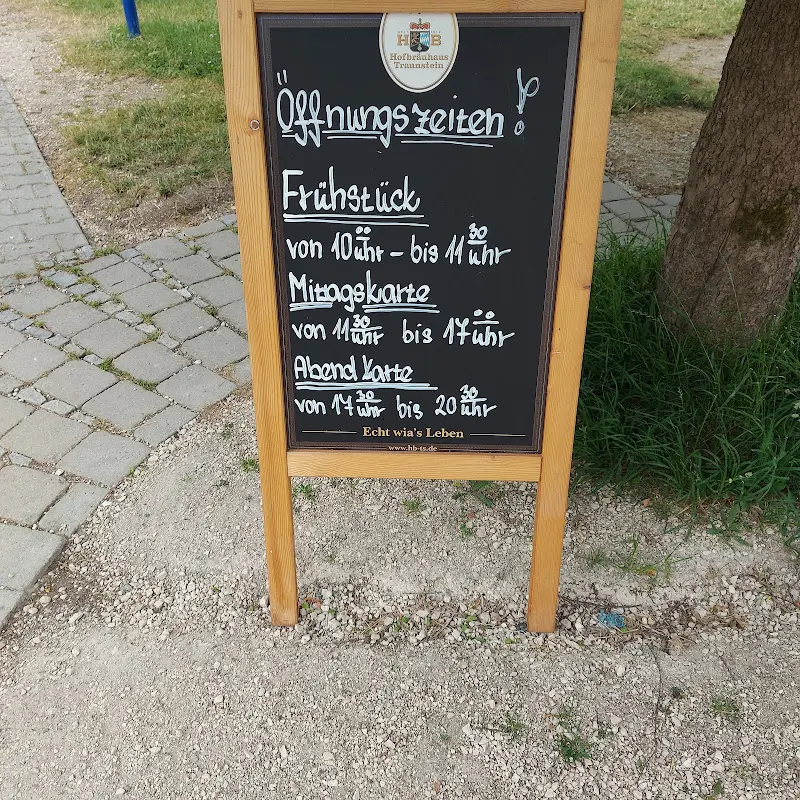 HB
Hofbräuhaus
Traunstein
Öffnungszeiten!
Frühstück
von 10 Uhr – bis 11 30 Uhr
Mittagskarte
von 11 30 Uhr bis 17 Uhr
Abend Karte
von 17 30 Uhr bis 20 30 Uhr
Echt wia's Leben
www.hb-ts.de